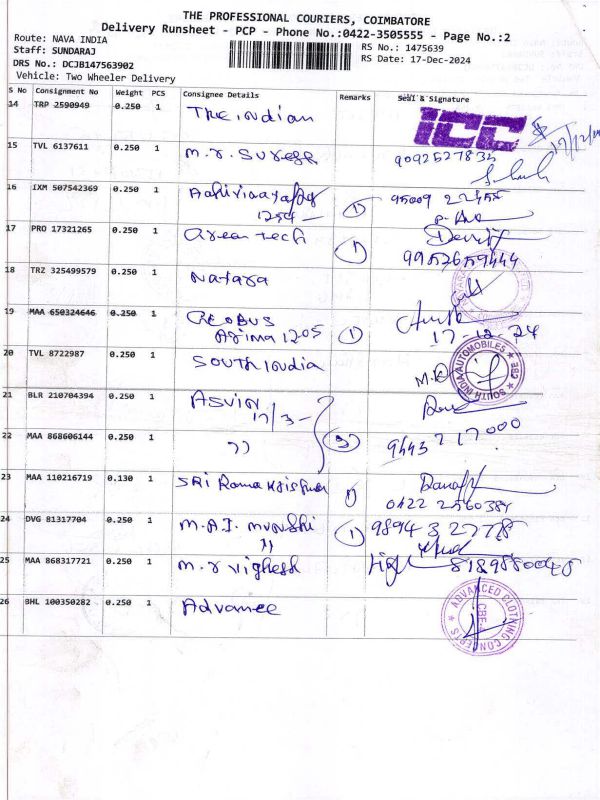 THE PROFESSIONAL COURIERS, COIMBATORE
Delivery Runsheet - PCP - Phone No.:0422-3505555 - Page No.:2
Route: NAVA INDIA
Staff: SUNDARAJ
RS No.: 1475639
DRS No.: DCJB147563902
RS Date: 17-Dec-2024
Vehicle: Two Wheeler Delivery
S No Consignment No Weight PCS Consignee Details Remarks Seal & Signature
14 TRP 2590949 0.250 1 The indian ICC 17/12/24
15 TVL 6137611 0.250 1 M.r. Suresh 9092527834
16 IXM 507542369 0.250 1 1254 - 1 95009 22455
17 PRO 17321265 0.250 1 arean tech 1 9952659444
18 TRZ 325499579 0.250 1 Natara
19 MAA 650324646 0.250 1 1205 1 17-12-24
20 TVL 8722987 0.250 1 South india M.K SOUTH INDIA AUTOMOBILES * CBE *
21 BLR 210704394 0.250 1 ASVIN 17/3-
22 MAA 868606144 0.250 1 " 3 9443217000
23 MAA 110216719 0.130 1 SRi Rama Krishna 1 0422 2560384
24 DVG 81317704 0.250 1 M.A.I. Munshi 1 9894327778
"
25 MAA 868317721 0.250 1 M.r Vighesh
26 BHL 100350282 0.250 1 Advance ADVANCED CLOTHING CONCEPTS * CBE-4 *